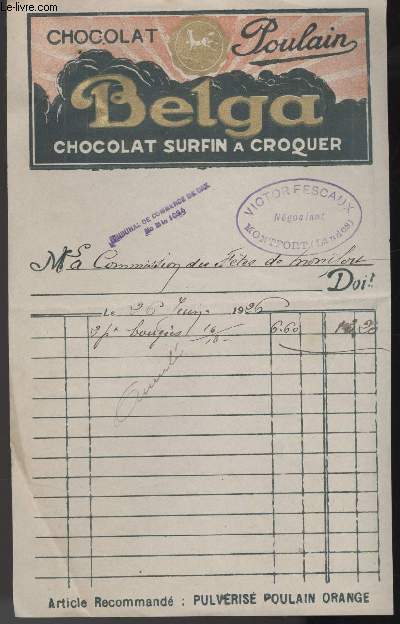 Le-livre.com
CHOCOLAT Poulain
Belga
CHOCOLAT SURFIN A CROQUER
TRIBUNAL DE COMMERCE DE DAX
VICTOR FESCAUX
Négociant
MONTFORT (Landes)
M La Commission des Fêtes de Montfort
Doit
Le 26 1926
2 pts bougies 6.60
Article Recommandé : PULVÉRISÉ POULAIN ORANGE